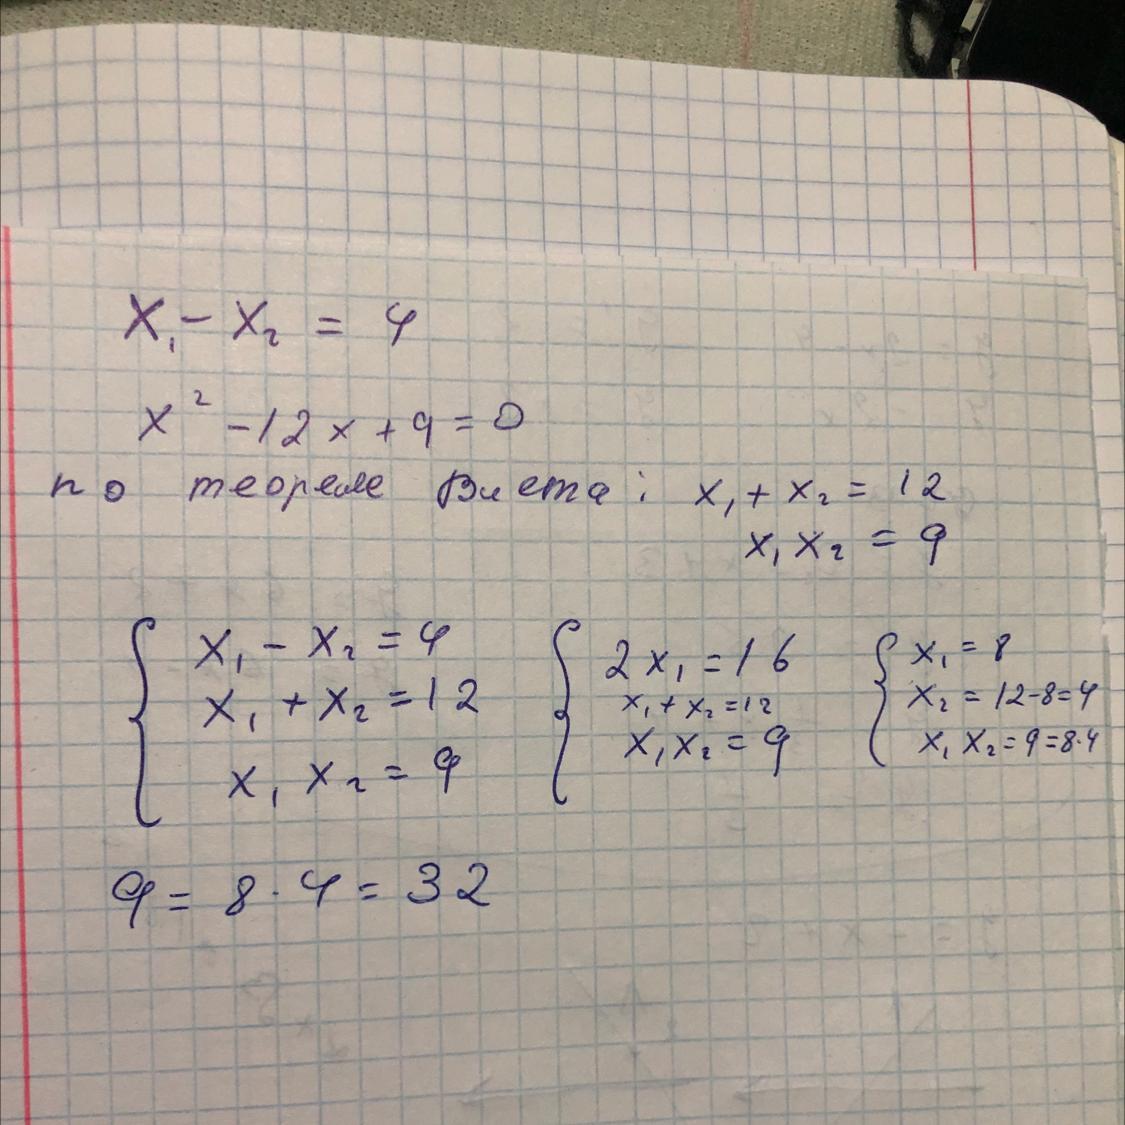 x₁ - x₂ = 4
x² - 12x + q = 0
по теореме Виета: x₁ + x₂ = 12
x₁ x₂ = q
x₁ - x₂ = 4
x₁ + x₂ = 12
x₁ x₂ = q
2x₁ = 16
x₁ + x₂ = 12
x₁ x₂ = q
x₁ = 8
x₂ = 12-8=4
x₁ x₂ = q = 8·4
q = 8·4 = 32